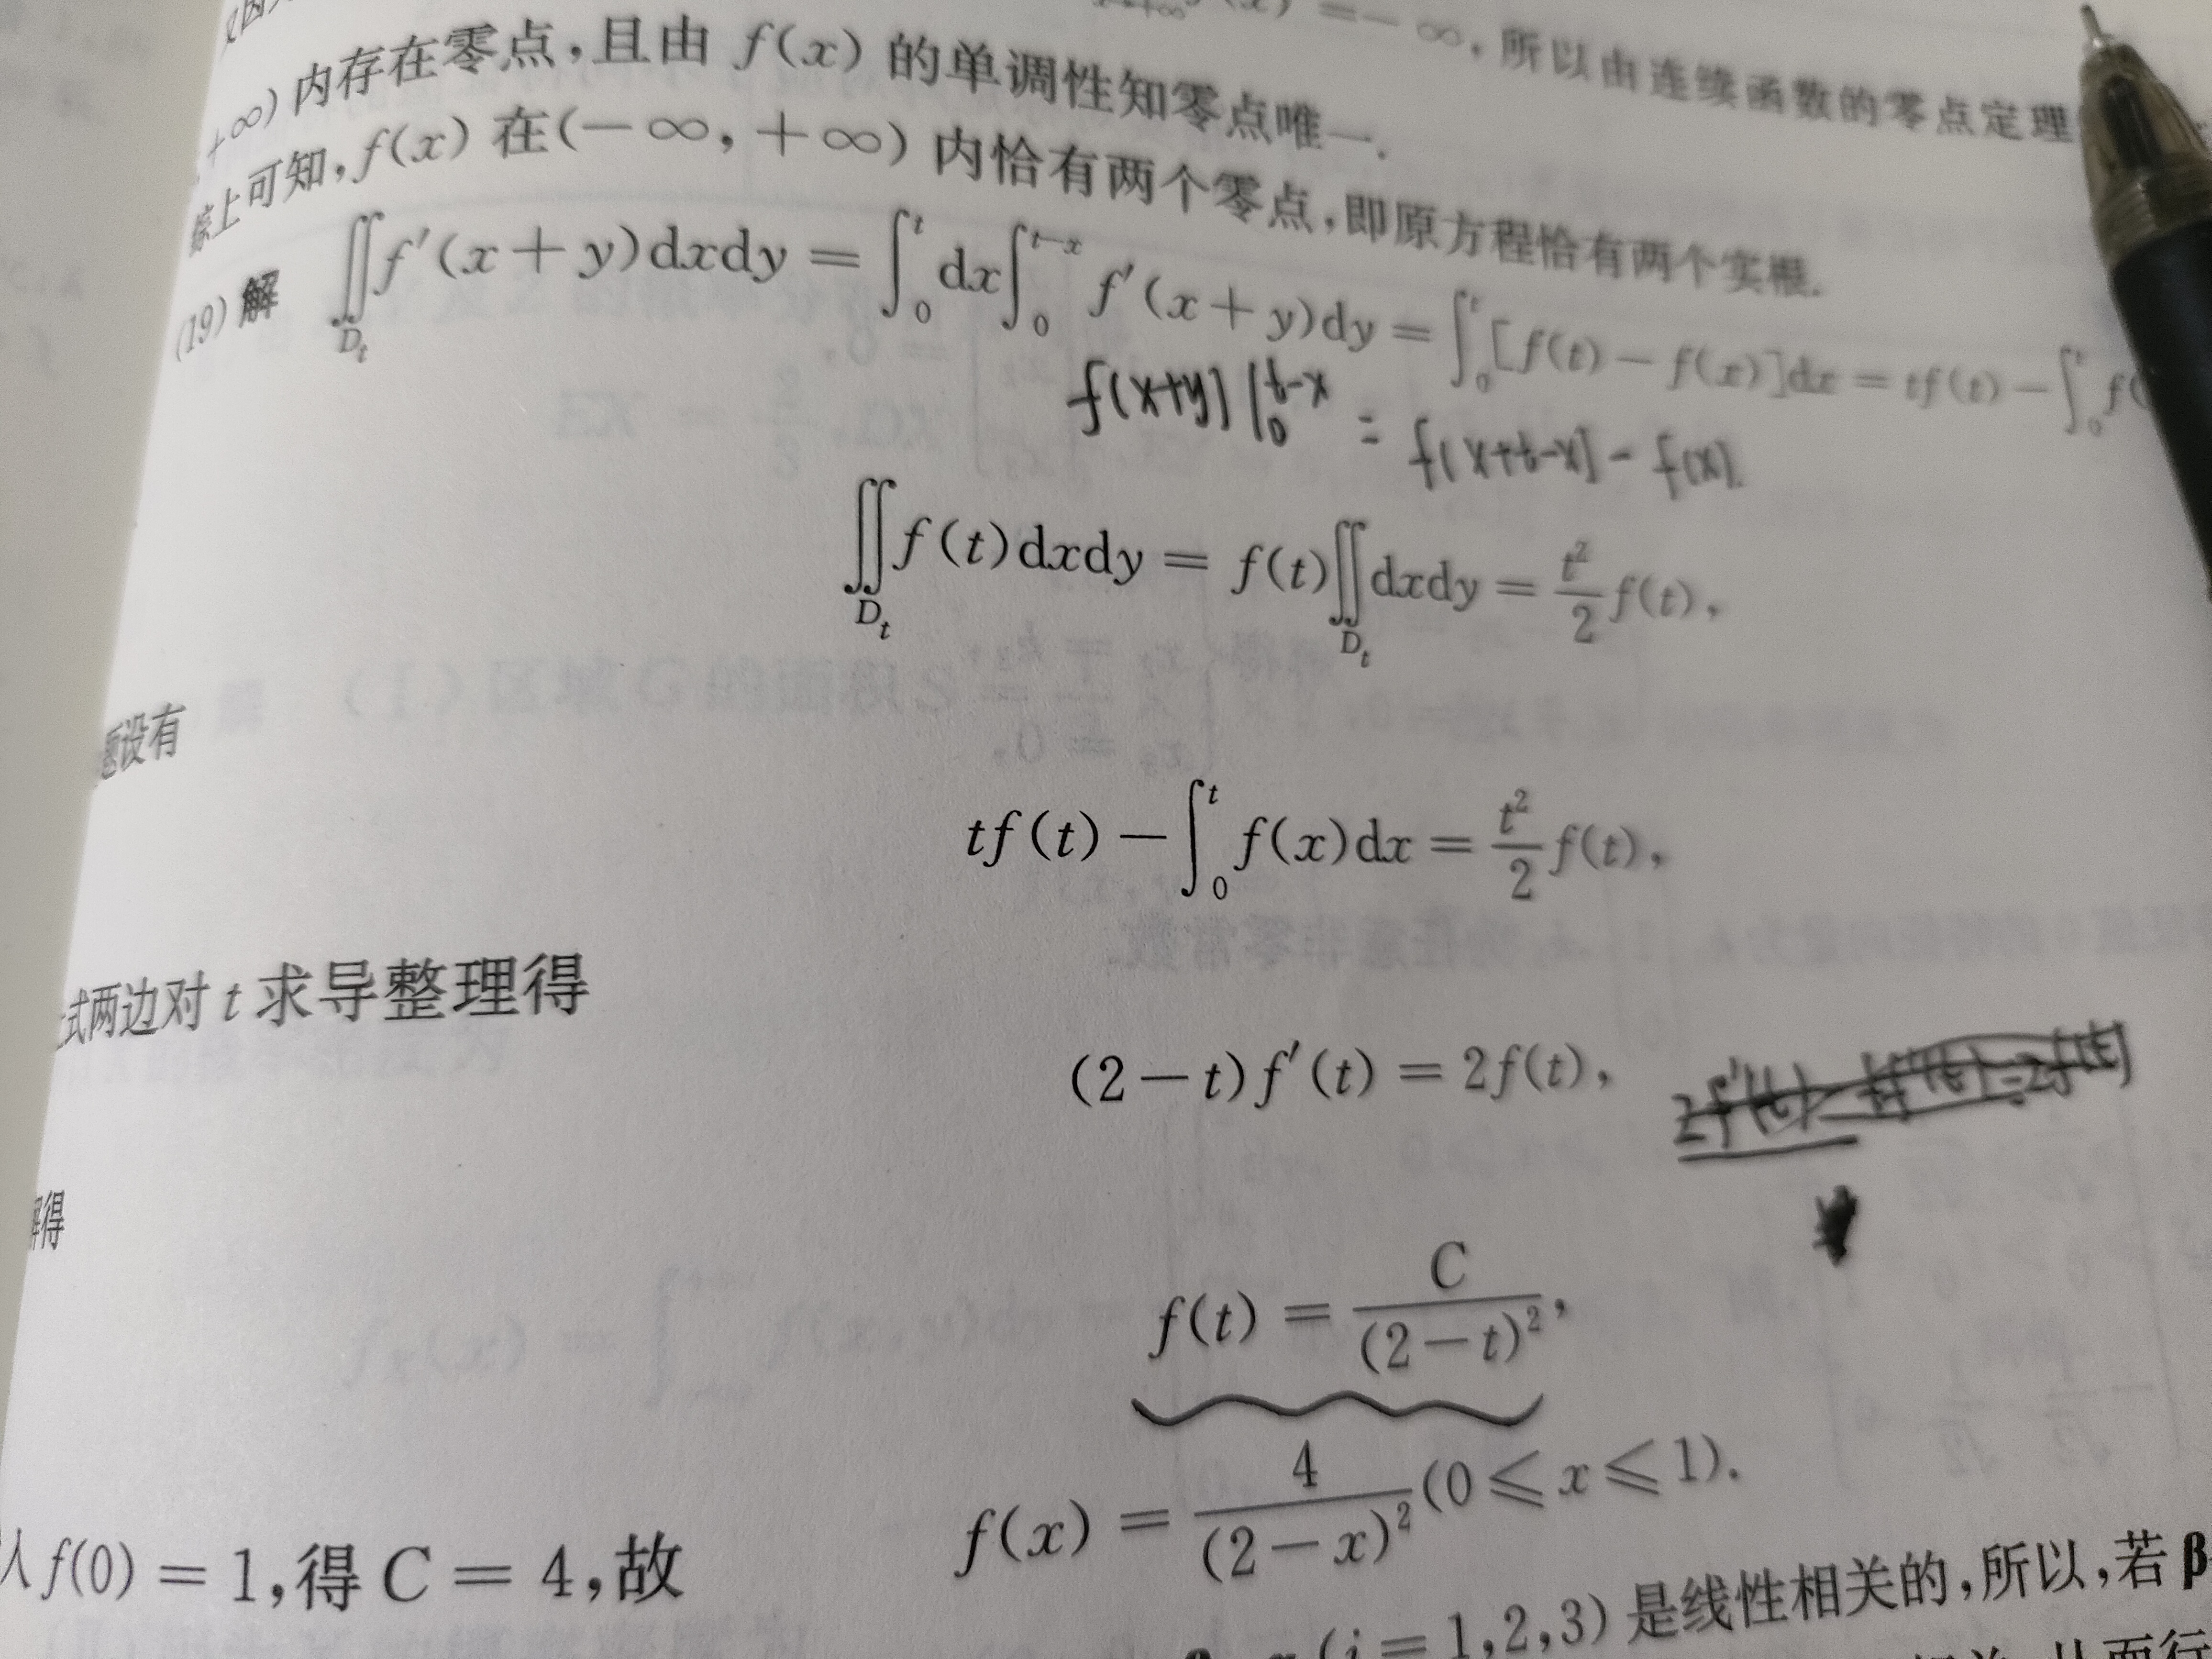 = -∞, 所以由连续函数的零点定理
+∞) 内存在零点,且由 f(x) 的单调性知零点唯一.
综上可知, f(x) 在(-∞, +∞) 内恰有两个零点,即原方程恰有两个实根.
(19) 解 ∬_{D_t} f′(x+y)dxdy = ∫_0^t dx∫_0^{t-x} f′(x+y)dy = ∫_0^t [f(t) - f(x)]dx = tf(t) - ∫_0^t f(
f(x+y) |_0^{t-x} = f(x+t-x) - f(x).
∬_{D_t} f(t)dxdy = f(t)∬_{D_t} dxdy = t²/2 f(t),
题设有
tf(t) - ∫_0^t f(x)dx = t²/2 f(t),
式两边对 t 求导整理得
(2-t)f′(t) = 2f(t),
2f′(t) - tf′(t) = 2f(t)
解得
f(t) = C/(2-t)²,
入 f(0) = 1,得 C = 4,故
f(x) = 4/(2-x)² (0 ⩽ x ⩽ 1).
(i = 1,2,3) 是线性相关的,所以,若 β